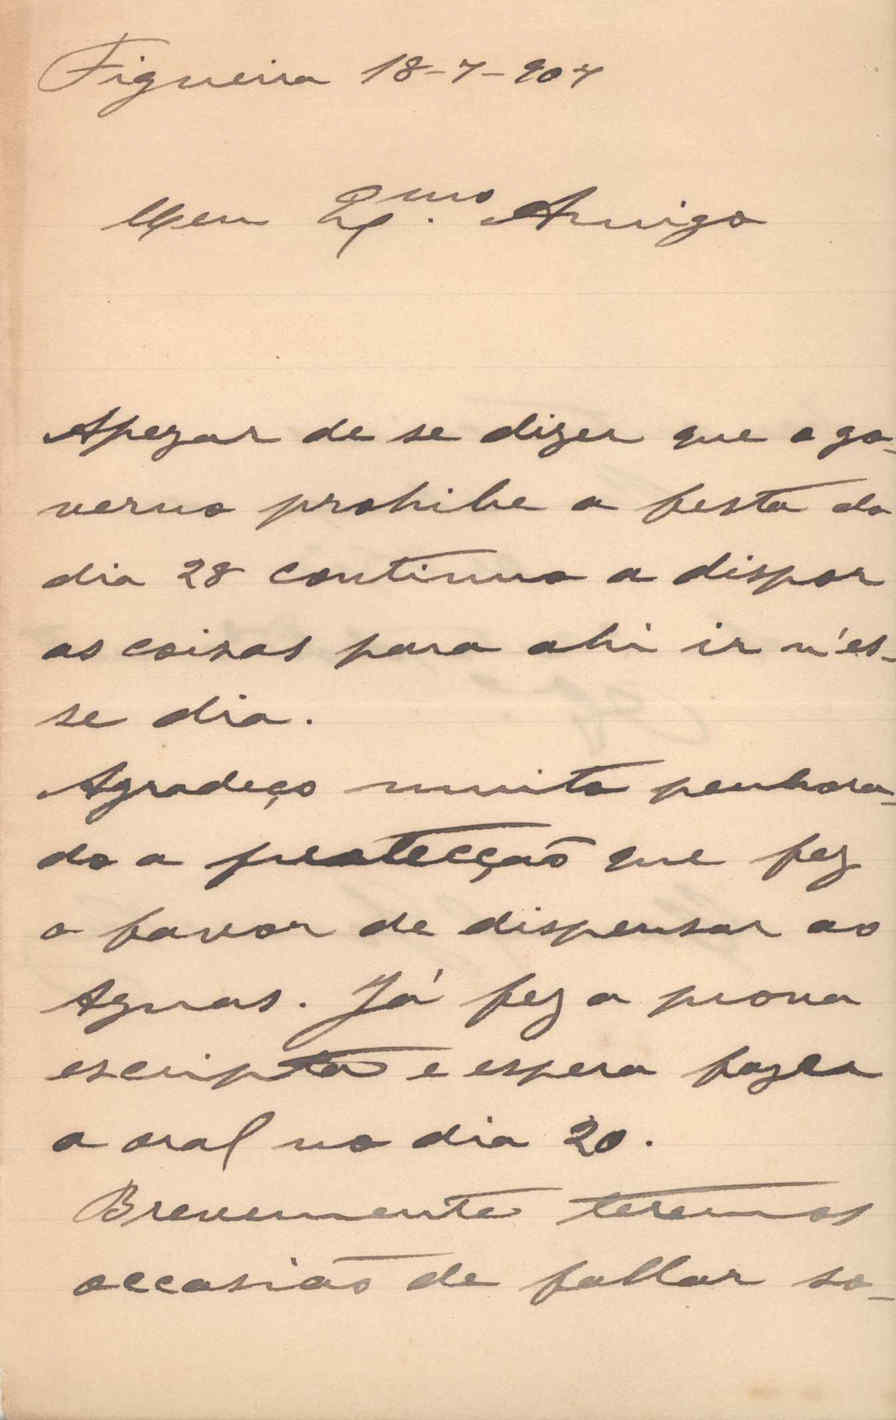 Figueira 18-7-907
Meu Exmo. Amigo
Apezar de se dizer que o go-
verno prohibe a festa do
dia 28 continuo a dispor
as coisas para ahi ir n'es-
se dia.
Agradeço muito penhora-
do a protecção que fez
o favor de dispensar ao
Aguas. Já fez a prova
escripta e espera fazer
a oral no dia 20.
Brevemente teremos
occasião de fallar so-